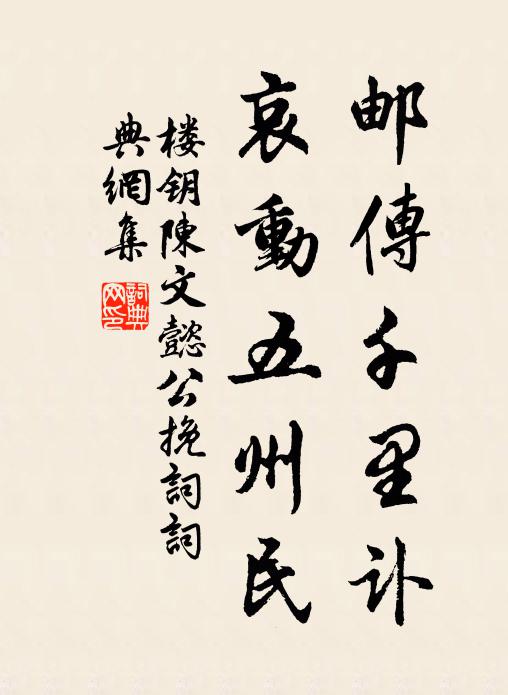 邮傳千里讣
哀動五州民
楼钥陳文懿公挽詞詞
典網集
詞典网印